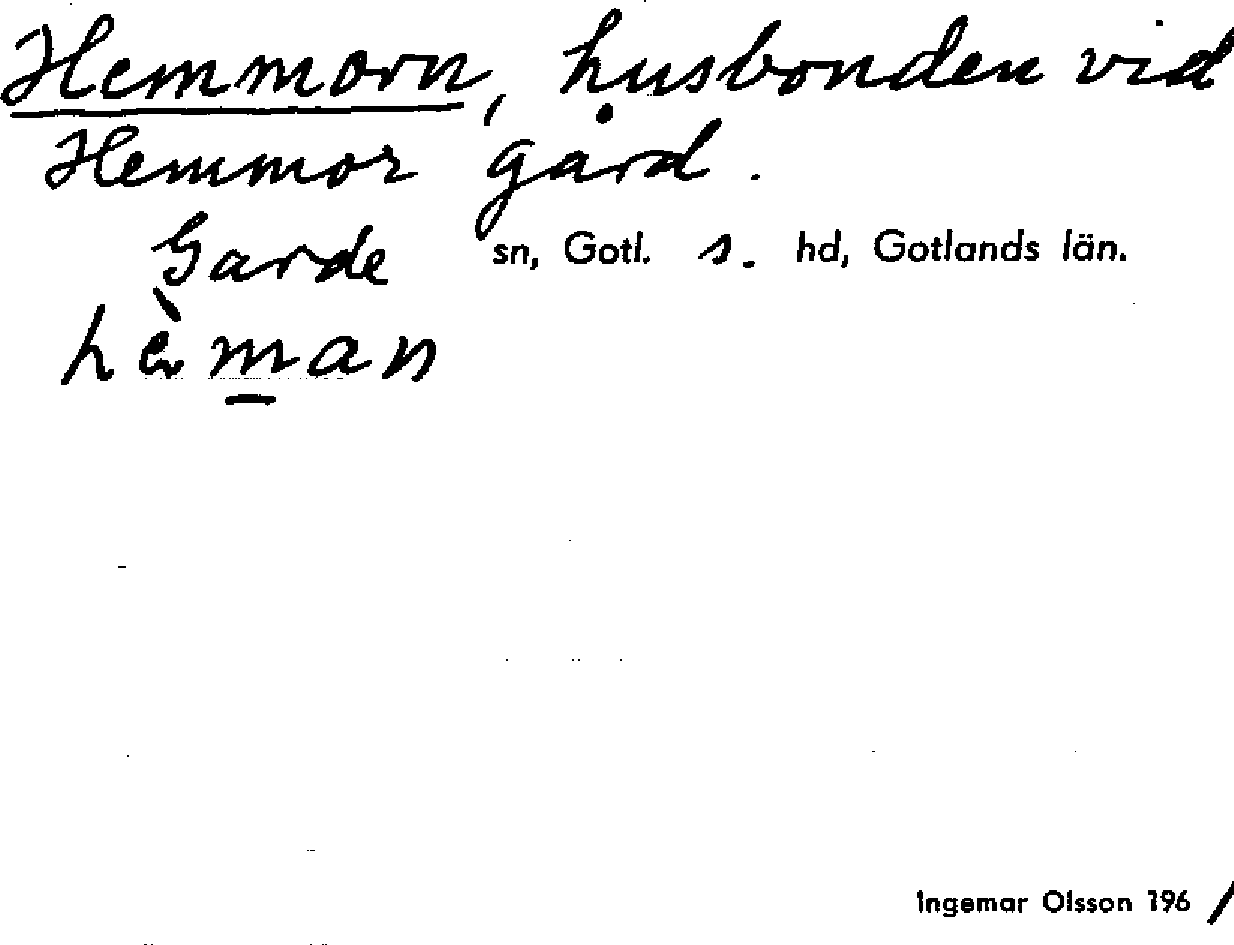 Hemmorn, husbonden vid
Hemmor gård.
Garde sn, Gotl. s. hd, Gotlands län.
hèman
Ingemar Olsson 196/